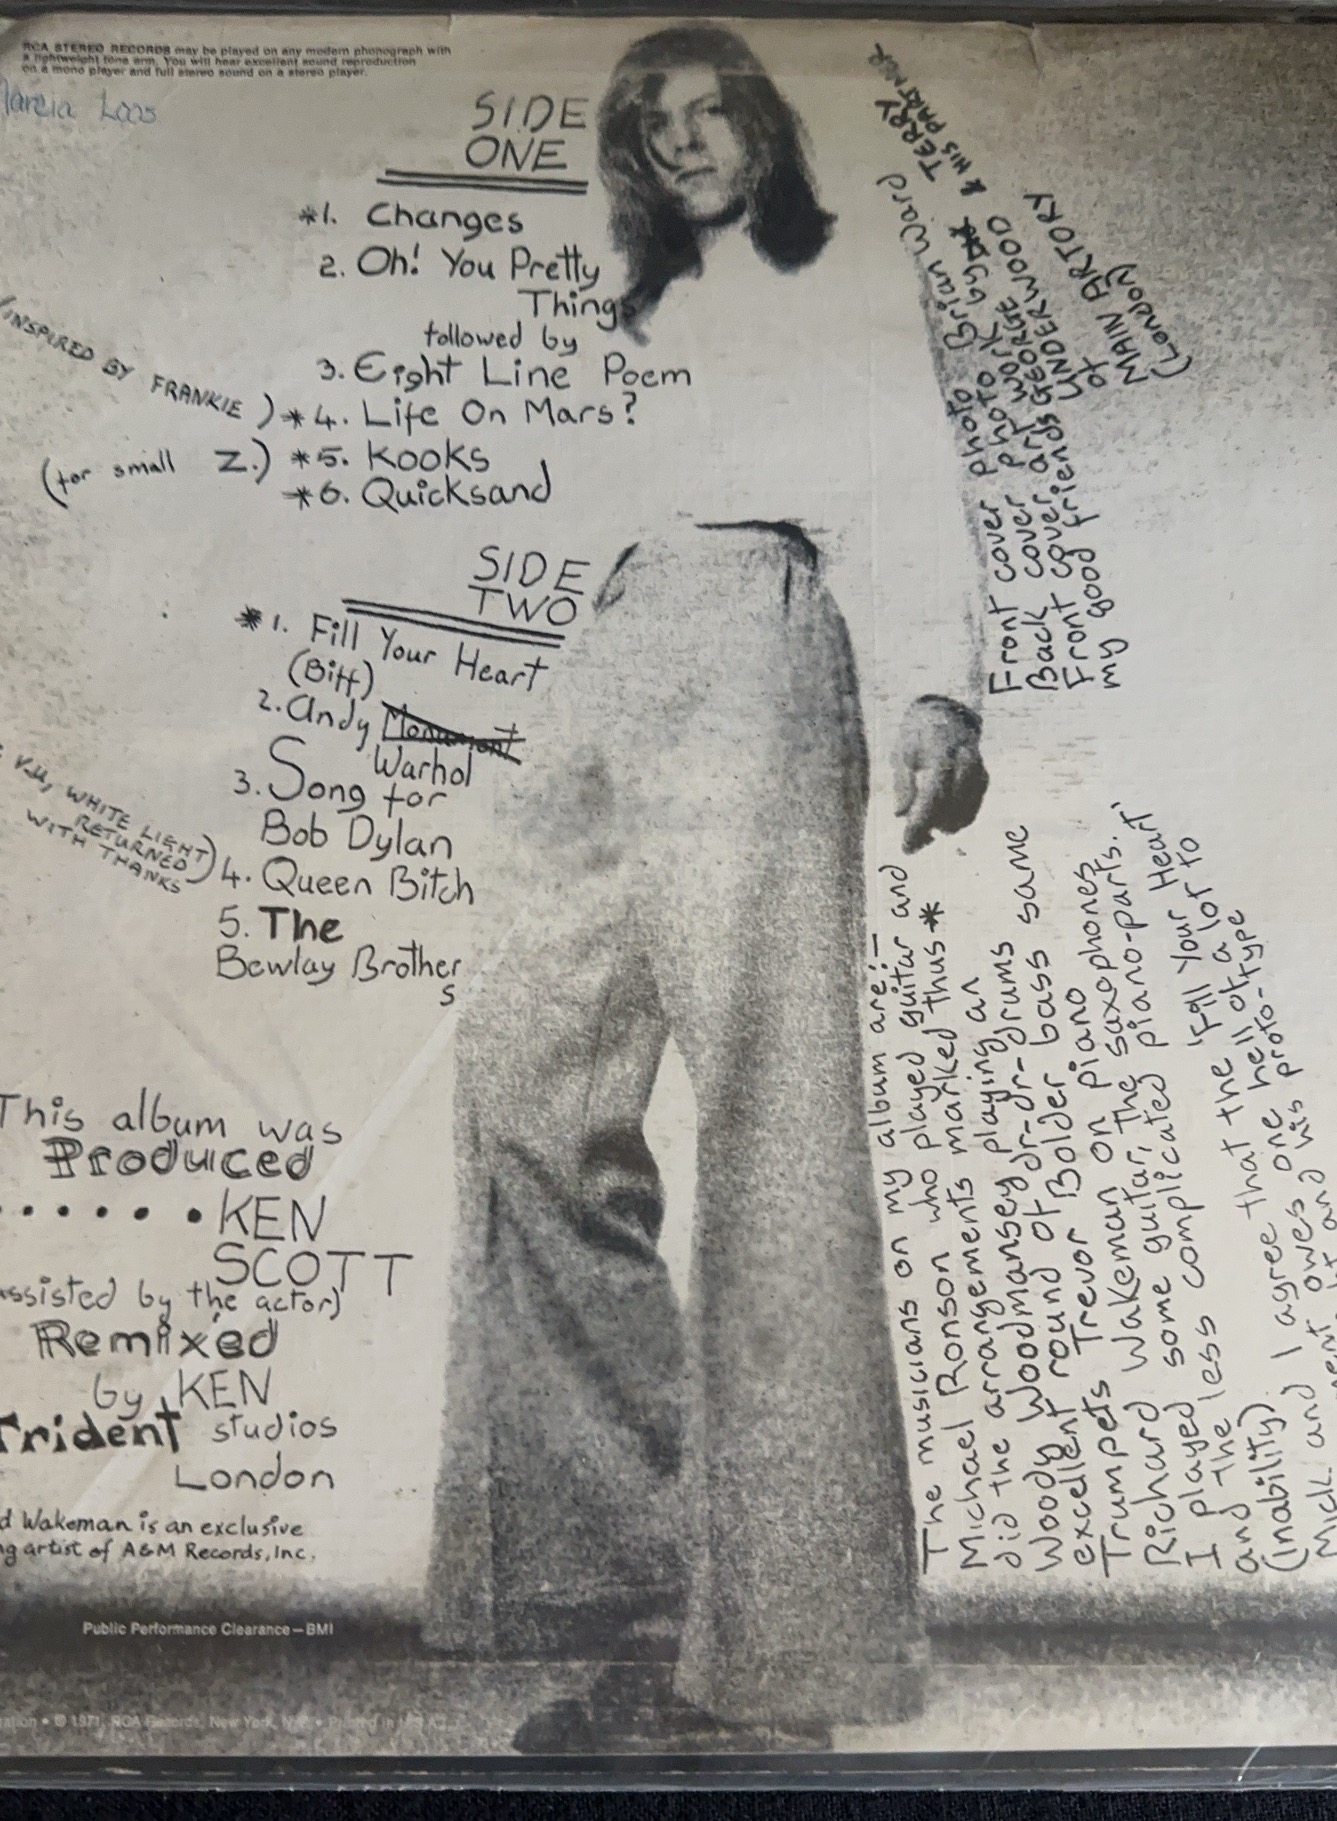 RCA STEREO RECORDS may be played on any modern phonograph with
a lightweight tone arm. You will hear excellent sound reproduction
on a mono player and full stereo sound on a stereo player.
Marcia Loos
SIDE
ONE
*1. Changes
2. Oh! You Pretty
Things
followed by
3. Eight Line Poem
(INSPIRED BY FRANKIE) *4. Life On Mars?
(for small Z.) *5. Kooks
*6. Quicksand
SIDE
TWO
*1. Fill Your Heart
(Biff)
2. Andy Monument
Warhol
3. Song for
Bob Dylan
V.U., WHITE LIGHT
RETURNED
WITH THANKS)
4. Queen Bitch
5. The
Bewlay Brother
s
This album was
Produced
......KEN
SCOTT
assisted by the actor)
Remixed
by KEN
Trident studios
London
d Wakeman is an exclusive
ng artist of A&M Records, Inc.
Public Performance Clearance—BMI
ation • © 1971, RCA Records, New York, N.Y. • Printed in U.S.A.
Front cover photo Brian Ward
Back cover photo work by
Front cover arts GEORGE UNDERWOOD
my good friends
TERRY
& HIS PARTNER
of
MAIN ARTORY
(London)
The musicians on my album are:—
Michael Ronson who played guitar and
did the arrangements marked thus *
Woody Woodmansey playing an
excellent round of dr-dr-dr-drums
Trevor Bolder bass same
Trumpets
Richard Wakeman on piano
I played some guitar, the saxophones
and the less complicated piano-parts.
(inability) I agree that the 'Fill Your Heart'
owes one hell of a lot to
and his proto-type